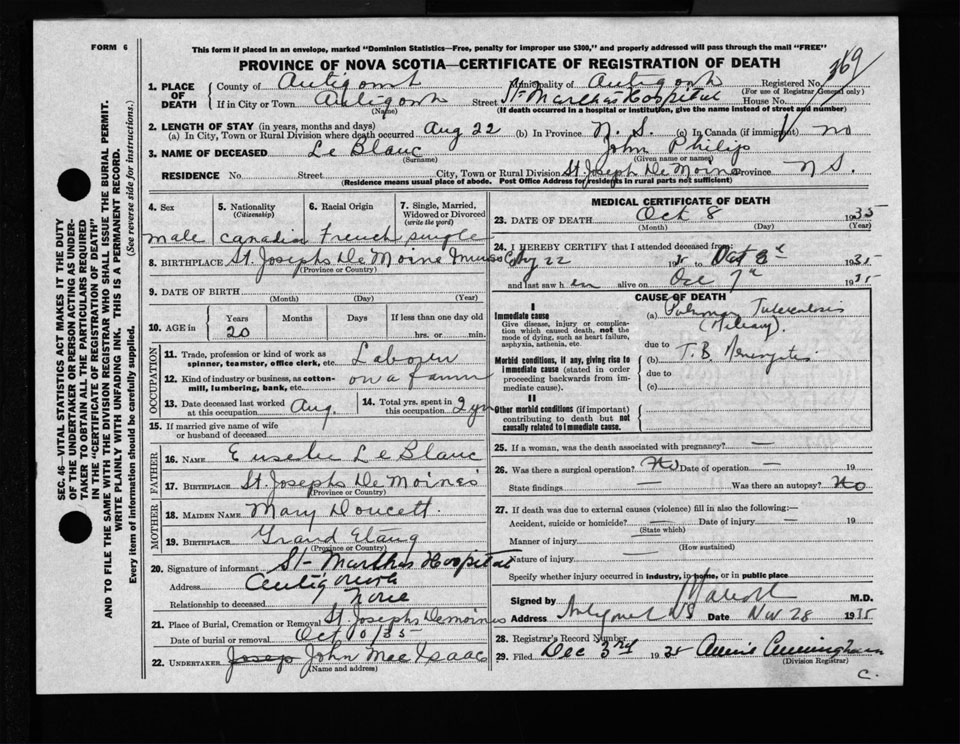 FORM 6
This form if placed in an envelope, marked "Dominion Statistics—Free, penalty for improper use $300," and properly addressed will pass through the mail "FREE"
PROVINCE OF NOVA SCOTIA—CERTIFICATE OF REGISTRATION OF DEATH
369
1. PLACE OF DEATH
County of Antigonish Municipality of Antigonish Registered No.
(For use of Registrar General only)
If in City or Town Antigonish Street St Marthas Hospital House No.
(Name) (If death occurred in a hospital or institution, give the name instead of street and number)
2. LENGTH OF STAY (in years, months and days)
(a) In City, Town or Rural Division where death occurred Aug 22 (b) In Province N. S. (c) In Canada (if immigrant) no
3. NAME OF DECEASED Le Blanc John Philip
(Surname) (Given name or names)
RESIDENCE No. Street City, Town or Rural Division St. Joseph De Moine Province N S.
(Residence means usual place of abode. Post Office Address for residents in rural parts not sufficient)
4. Sex 5. Nationality (Citizenship) 6. Racial Origin 7. Single, Married, Widowed or Divorced (write the word)
male Canadian French single
8. BIRTHPLACE St. Josephs De Moine Inverness Co
(Province or Country)
9. DATE OF BIRTH
(Month) (Day) (Year)
10. AGE in Years Months Days If less than one day old
20 hrs. or min.
OCCUPATION
11. Trade, profession or kind of work as spinner, teamster, office clerk, etc. Laborer
12. Kind of industry or business, as cotton-mill, lumbering, bank, etc. on a farm
13. Date deceased last worked at this occupation Aug. 14. Total yrs. spent in this occupation 2 yrs
15. If married give name of wife or husband of deceased
FATHER
16. NAME Eusebe Le Blanc
17. BIRTHPLACE St. Josephs De Moines
(Province or Country)
MOTHER
18. MAIDEN NAME Mary Doucett.
19. BIRTHPLACE Grand Etang
(Province or Country)
20. Signature of informant St- Marthas Hospital
Address Antigonish
Relationship to deceased None
21. Place of Burial, Cremation or Removal St. Josephs Demoines
Date of burial or removal Oct 10/35
22. UNDERTAKER Joseph John Mac Isaac
(Name and address)
MEDICAL CERTIFICATE OF DEATH
23. DATE OF DEATH Oct 8 1935
(Month) (Day) (Year)
24. I HEREBY CERTIFY that I attended deceased from:
Aug 22 1935 to Oct 8th 1935
and last saw him alive on Oct 7th 1935
CAUSE OF DEATH
I
Immediate cause
Give disease, injury or complication which caused death, not the mode of dying, such as heart failure, asphyxia, asthenia, etc.
(a) Pulmonary Tuberculosis
(Miliary).
due to
Morbid conditions, if any, giving rise to immediate cause (stated in order proceeding backwards from immediate cause)
(b) T.B. Meningitis.
due to
(c)
II
Other morbid conditions (if important) contributing to death but not causally related to immediate cause.
25. If a woman, was the death associated with pregnancy? —
26. Was there a surgical operation? No Date of operation — 19
State findings — Was there an autopsy? No
27. If death was due to external causes (violence) fill in also the following:—
Accident, suicide or homicide? — Date of injury — 19
(State which)
Manner of injury
(How sustained)
Nature of injury
Specify whether injury occurred in industry, in home, or in public place
Signed by M.D.
Address Antigonish NS Date Nov 28 1935
28. Registrar's Record Number
29. Filed Dec 3rd 19 Annie Cunningham
(Division Registrar)
C.
SEC. 46—VITAL STATISTICS ACT MAKES IT THE DUTY
OF THE UNDERTAKER OR PERSON ACTING AS UNDERTAKER TO OBTAIN ALL THE PARTICULARS REQUIRED
IN THE "CERTIFICATE OF REGISTRATION OF DEATH"
AND TO FILE THE SAME WITH THE DIVISION REGISTRAR WHO SHALL ISSUE THE BURIAL PERMIT.
WRITE PLAINLY WITH UNFADING INK. THIS IS A PERMANENT RECORD.
Every item of information should be carefully supplied. (See reverse side for instructions.)